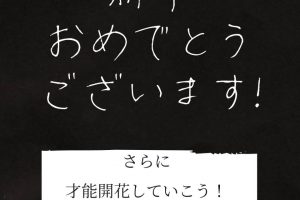 おめでとう
ございます!
さらに
才能開花していこう！